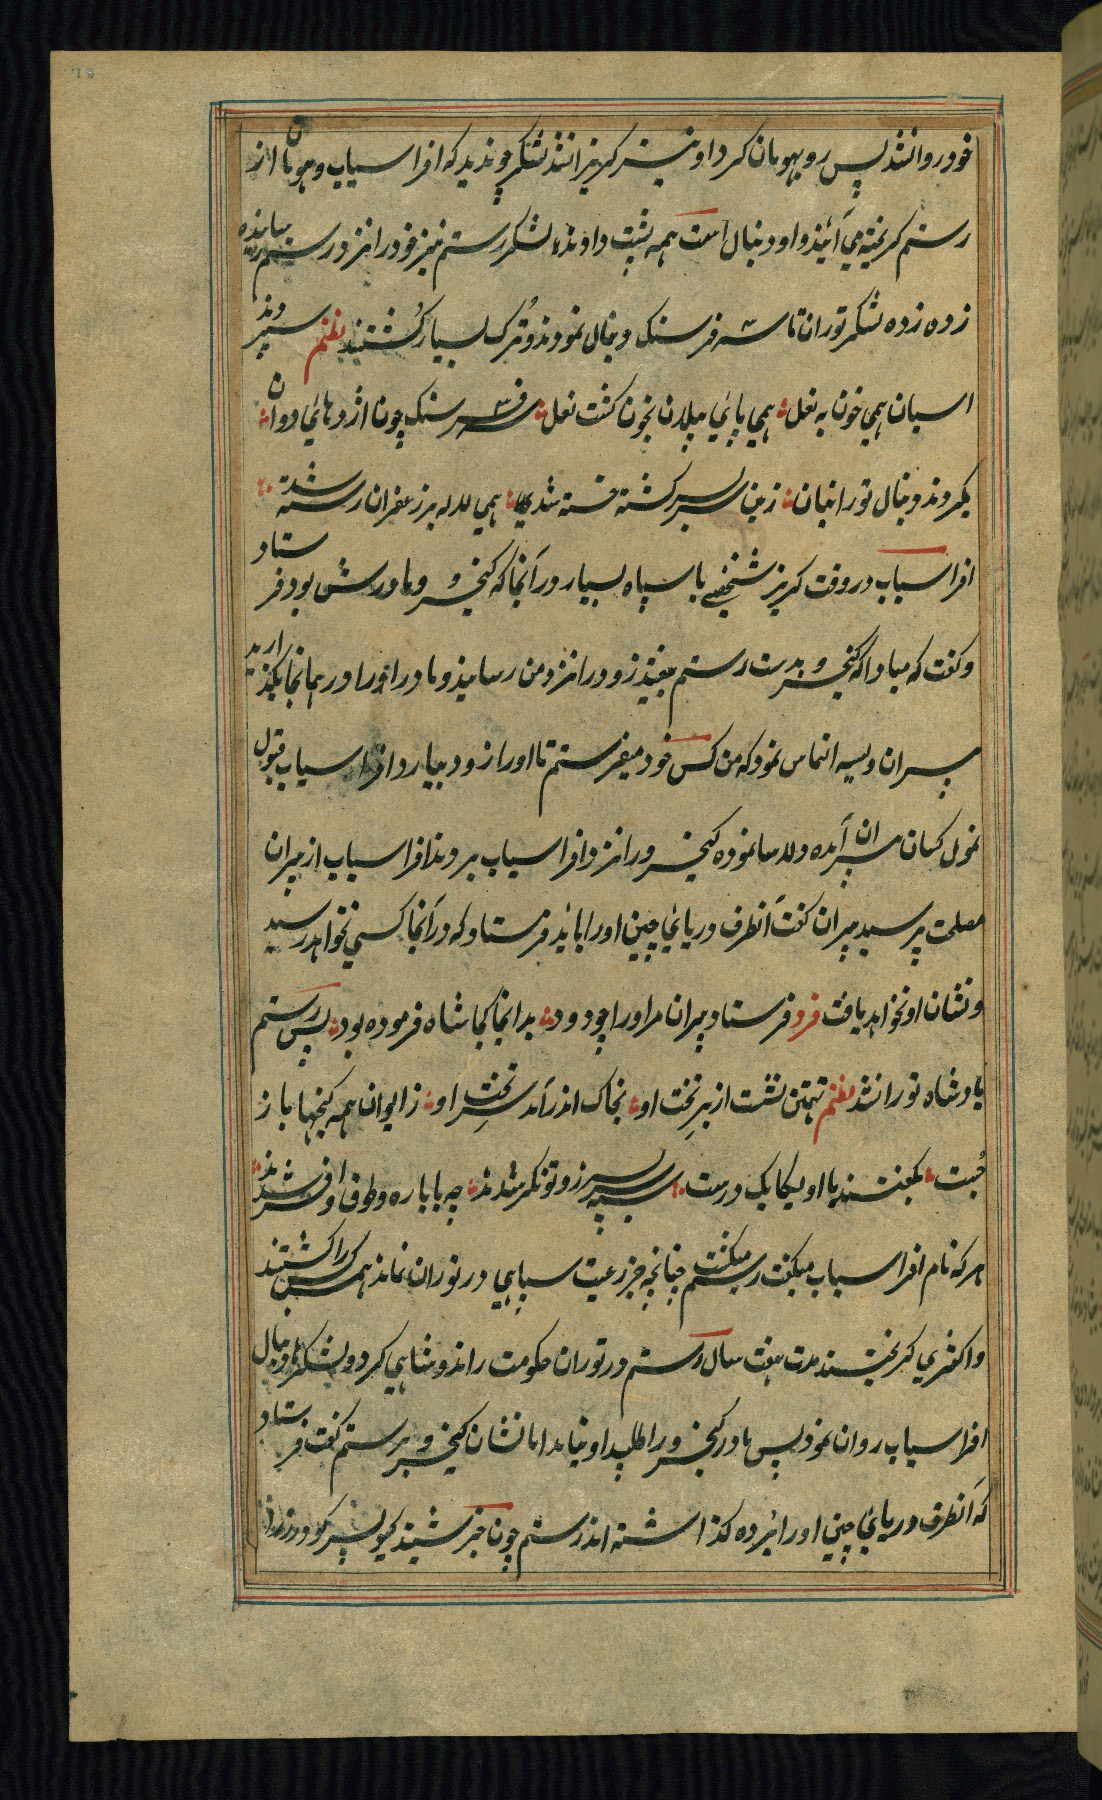 خود روانشد پس رو بهومان کرد او نیز گریزانشد لشکر چو ندید که افراسیاب و هومان از
رستم گریخته می آیند و او دنبال است همه پشت دادند لشکر رستم نیز خود را نزد رستم رسانیده
زده زده لشکر توران تا سه فرسنک دنبال نمودند و ترک بسیار کشتند نظم سپردند
اسپان همی خون به نعل همی پای پیلان بخون کشت لعل سه فرسنک چون اژدهای دوان
بکردند دنبال تورانیان زمین سربسر کشته خسته شده همی لاله بر زعفران رسته شده
افراسیاب در وقت کریز شخصی با سپاه بسیار در آنجا که کیخسرو و مادرش بود فرستاد
و کفت که مبادا که کیخسرو بدست رستم بیفتد زود در نزد من رسانید و مادر او را در همانجا بکذارید
پیران ویسه التماس نمود که من کس خود میفرستم تا او را زود بیارد افراسیاب قبول
نمود کسان پیران آمده دلاسا نموده کیخسرو را نزد افراسیاب بردند افراسیاب از پیران
مصلحت پرسید پیران کفت آنطرف دریای چین او را باید فرستاد که در آنجا کسی نخواهد رسید
و نشان او نخواهد یافت فرد فرستاد پیران مر او را چو دود بدانجا کجا شاه فرموده بود پس رستم
پادشاه تورانشد نظم تهمتن نشست از بر تخت او بخاک اندر آمد سر بخت او ز ایوان همه کنجها باز
جست بکفتند با او یکایک درست سپه سربسر زو توانگر شدند چه با باره و طوق و افسر شدند
هر که نام افراسیاب میکفت رستم میکشت چنانچه جز رعیت سپاهی در توران نماند همین کس را کشتند
و اکثری کریختند مدت هفت سال رستم در توران حکومت راند و شاهی کرد و لشکرها دنبال
افراسیاب روان نمود پس مادر کیخسرو را طلبید او نیامد اما نشان کیخسرو بر رستم کفت فرستاد
که آنطرف دریای چین او را برده کذاشته اند رستم چون خبر شنید کیو پسر کودرز را